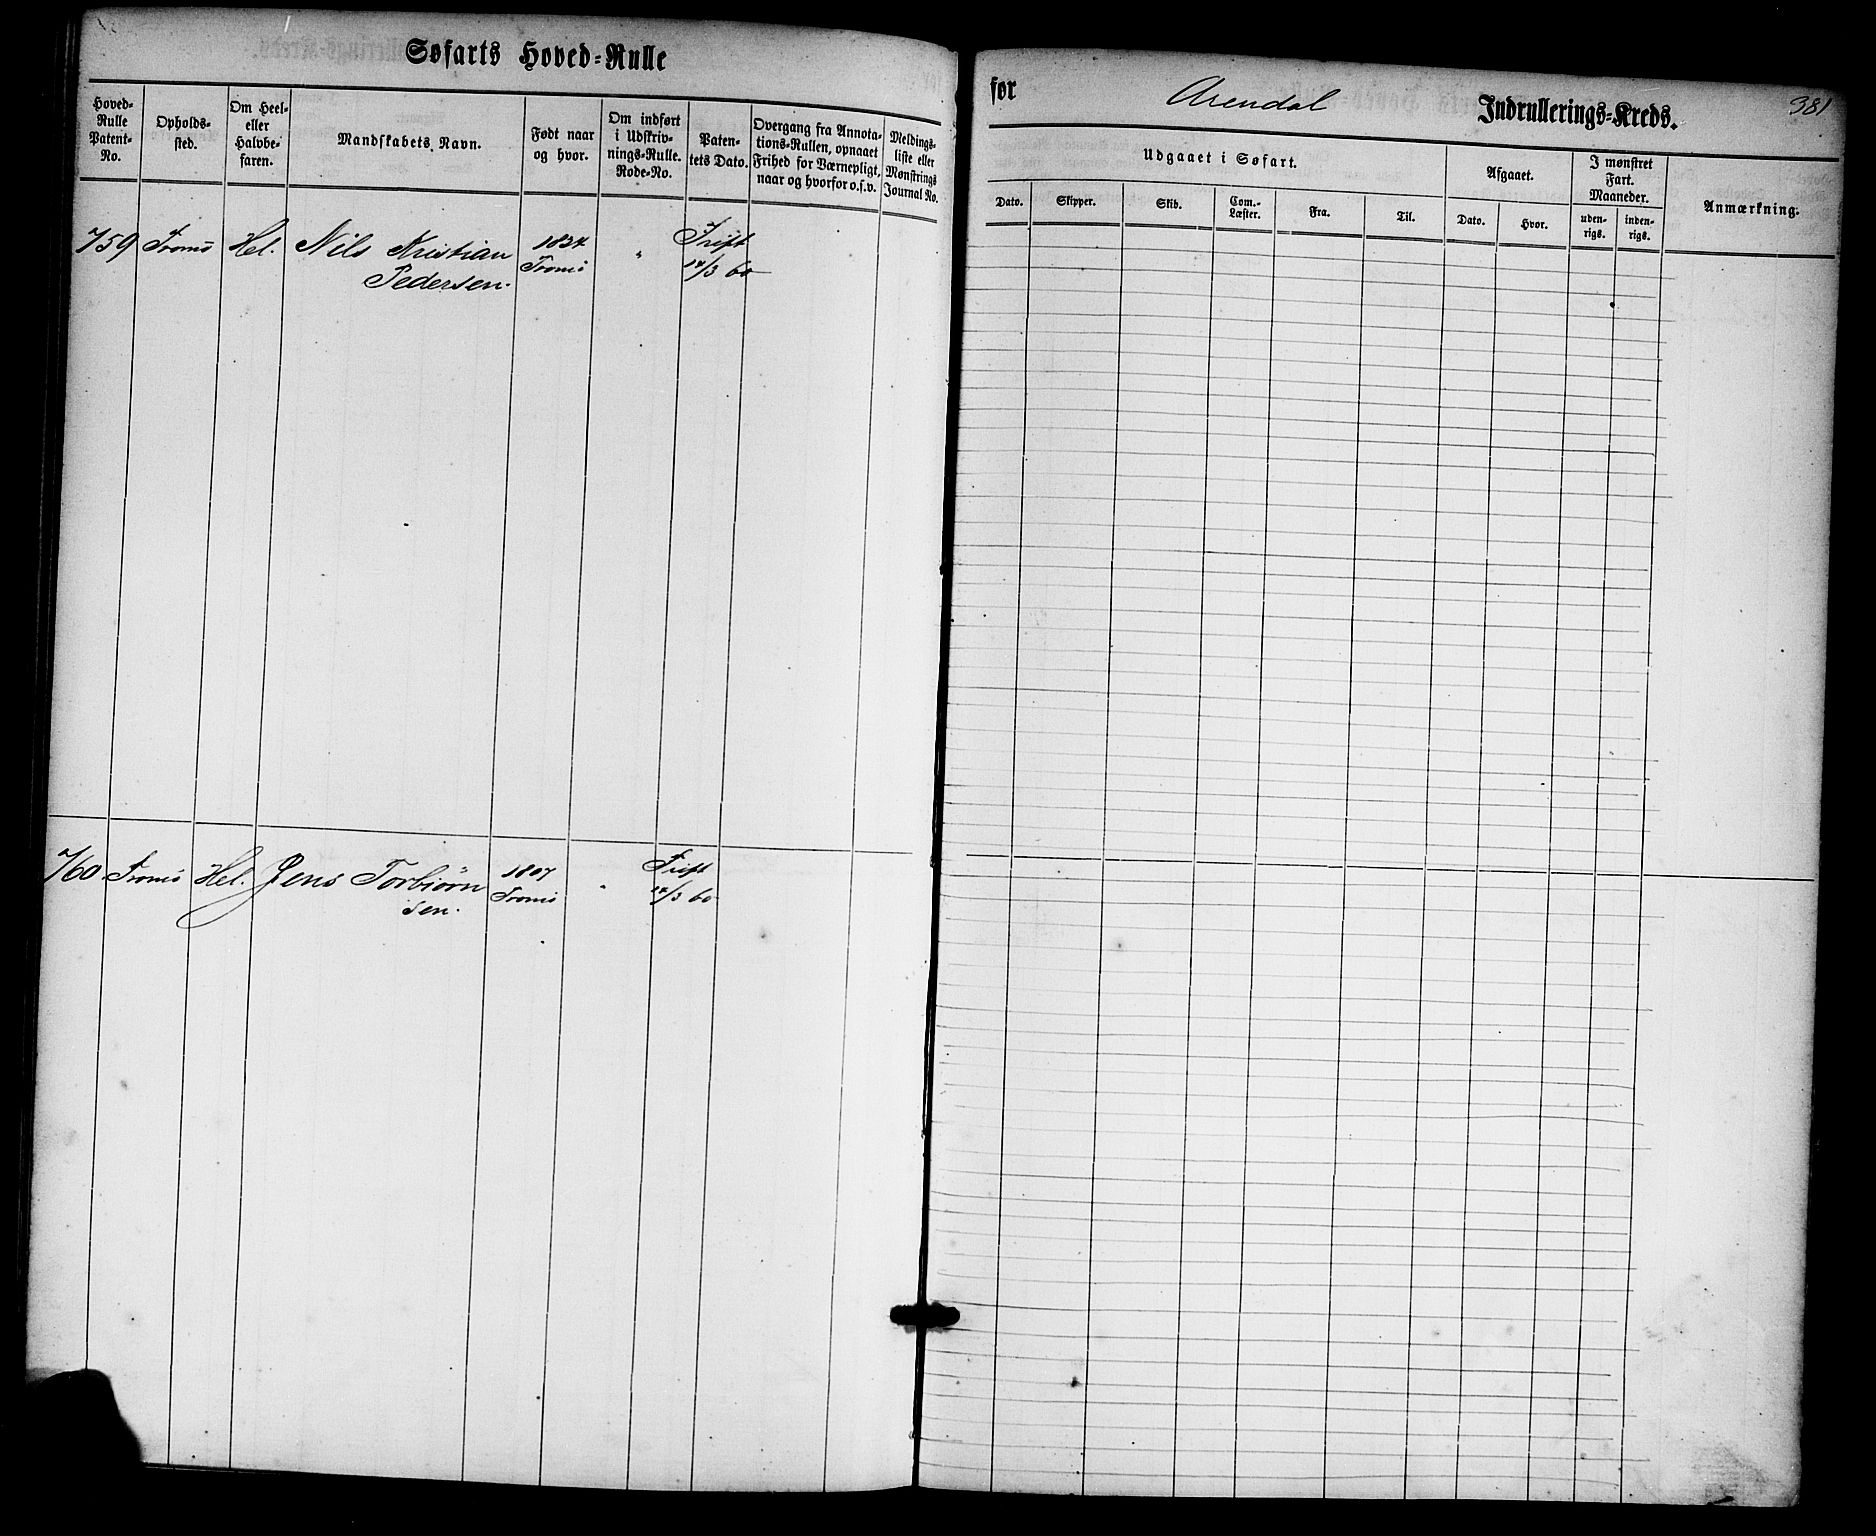 Søfarts Hoved=Rulle
for Arendal Indrullerings=Kreds. 381
Hoved-
Rulle
Patent-
No.
Opholds-
sted.
Om Heel-
eller
Halvbe-
faren.
Mandskabets Navn.
Født naar
og hvor.
Om indført
i Udskriv-
nings-Rulle.
Rode-No.
Paten-
tets Dato.
Overgang fra Annota-
tions-Rullen, opnaaet
Frihed for Værnepligt,
naar og hvorfor o.s.v.
Meldings-
liste eller
Mønstrings
Journal No.
Udgaaet i Søfart.
Dato.
Skipper.
Skib.
Com.-
Læster.
Fra.
Til.
Afgaaet.
Dato.
Hvor.
I mønstret
Fart.
Maaneder.
uden-
rigs.
inden-
rigs.
Anmærkning.
759 Tromö Hel. Nils Kristian 1824 Trift
Pedersen. Tromö " 14/3 60
760 Tromö Hel. Jens Torbiörn 1807 Trift
sen. Tromö " 14/3 60